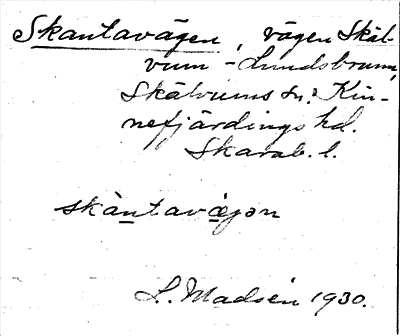 Skantavägen, vägen Skäl-
vum - Lundsbrunn,
Skälvums sn. Kin-
nefjärdings hd.
Skarab. l.
skàntavä̀gən
L. Madsén 1930.